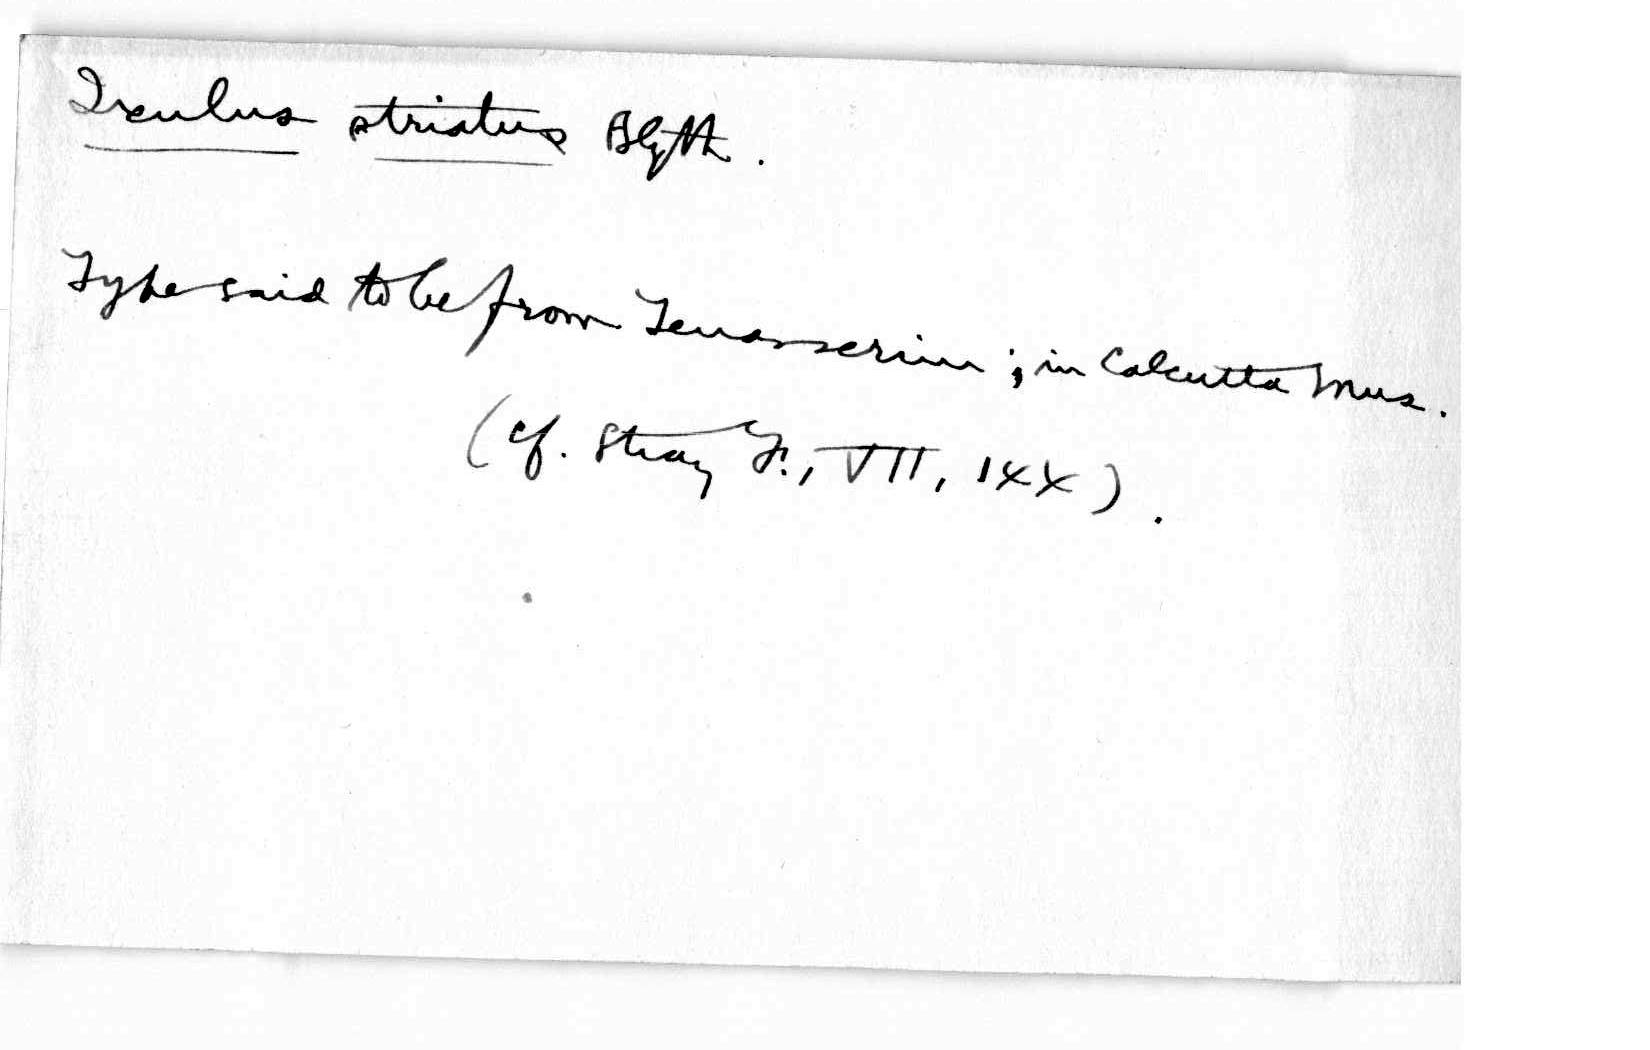 Ixulus striatus Blyth.
Type said to be from Tenasserim; in Calcutta Mus.
(Cf. Stray F., VII, 1XX).